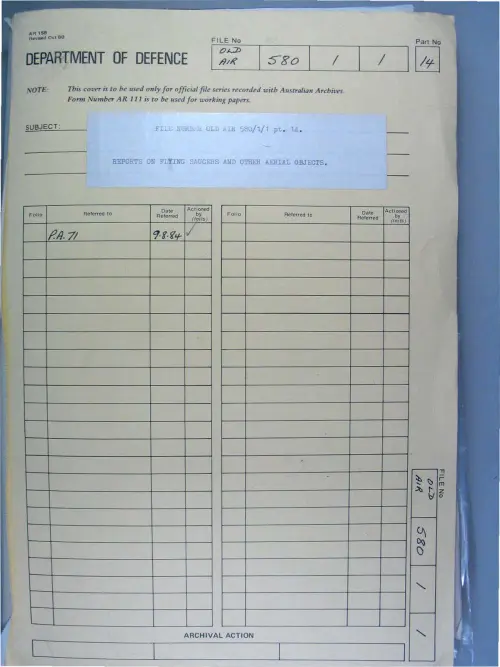 AR 15B
Revised Oct 69
FILE No
Part No
DEPARTMENT OF DEFENCE
OLD AIR 580 / 1 / 1 14
NOTE: This cover is to be used only for official file series recorded with Australian Archives.
Form Number AR 111 is to be used for working papers.
SUBJECT:
FILE NUMBER OLD AIR 580/1/1 pt. 14.
REPORTS ON FLYING SAUCERS AND OTHER AERIAL OBJECTS.
Folio Referred to Date Referred Actioned by (Inits) Folio Referred to Date Referred Actioned by (Inits)
P.A. 71 9.8.84
FILE No
OLD AIR 580 / 1 / 1
ARCHIVAL ACTION